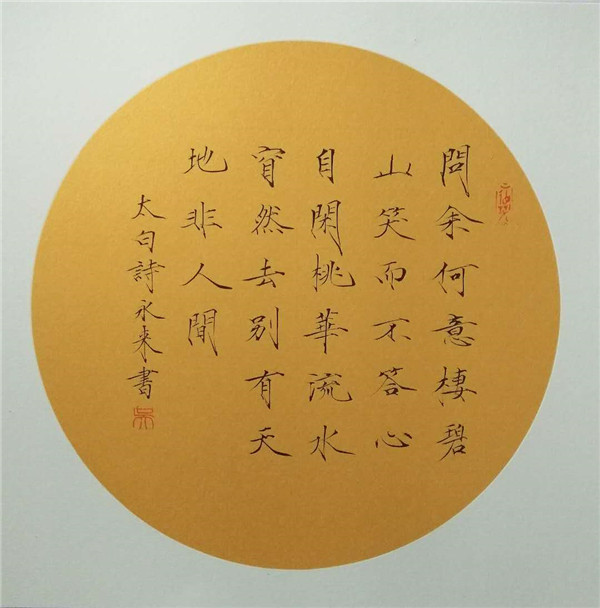 問余何意棲碧
山笑而不答心
自閑桃華流水
窅然去別有天
地非人間
太白詩永来書